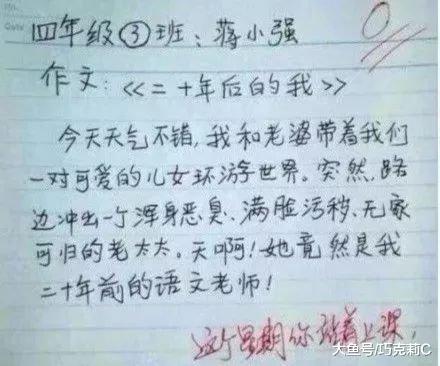 四年级③班：蒋小强
作文：<<二十年后的我>>
今天天气不错，我和老婆带着我们
一对可爱的儿女环游世界。突然，路
边冲出一个浑身恶臭、满脸污秽、无家
可归的老太太。天啊！她竟然是我
二十年前的语文老师！
这个星期你站着上课。
大鱼号/巧克莉C